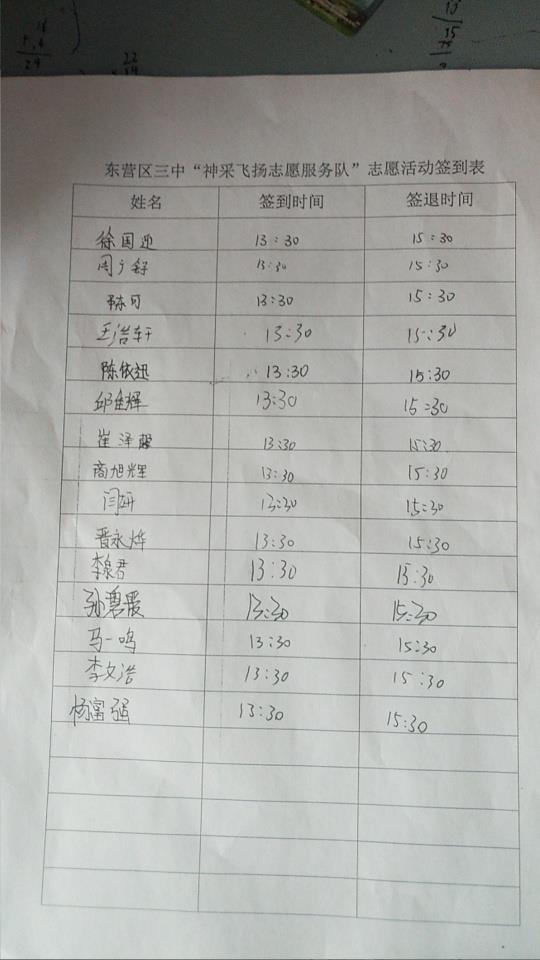 东营区三中“神采飞扬志愿服务队”志愿活动签到表
姓名 签到时间 签退时间
徐国迎 13:30 15:30
13:30 15:30
陈可 13:30 15:30
王浩轩 13:30 15:30
陈依迅 13:30 15:30
邱佳辉 13:30 15:30
崔泽馨 13:30 15:30
商旭辉 13:30 15:30
闫妍 13:30 15:30
晋永烨 13:30 15:30
李泉君 13:30 15:30
孙碧霞 13:30 15:30
马一鸣 13:30 15:30
李文浩 13:30 15:30
杨富强 13:30 15:30